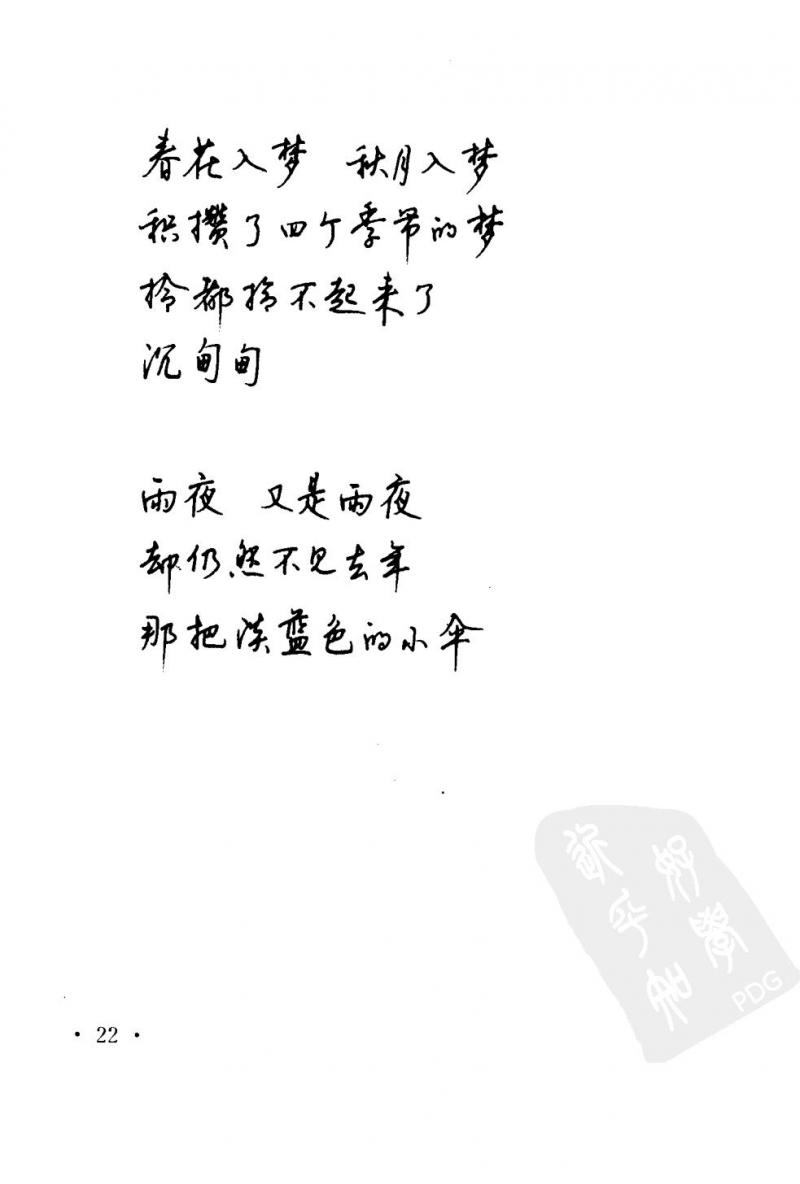 春花入梦 秋月入梦
积攒了四个季节的梦
拎都拎不起来了
沉甸甸
雨夜 又是雨夜
却仍然不见去年
那把淡蓝色的小伞
好学
近乎知
PDG
· 22 ·